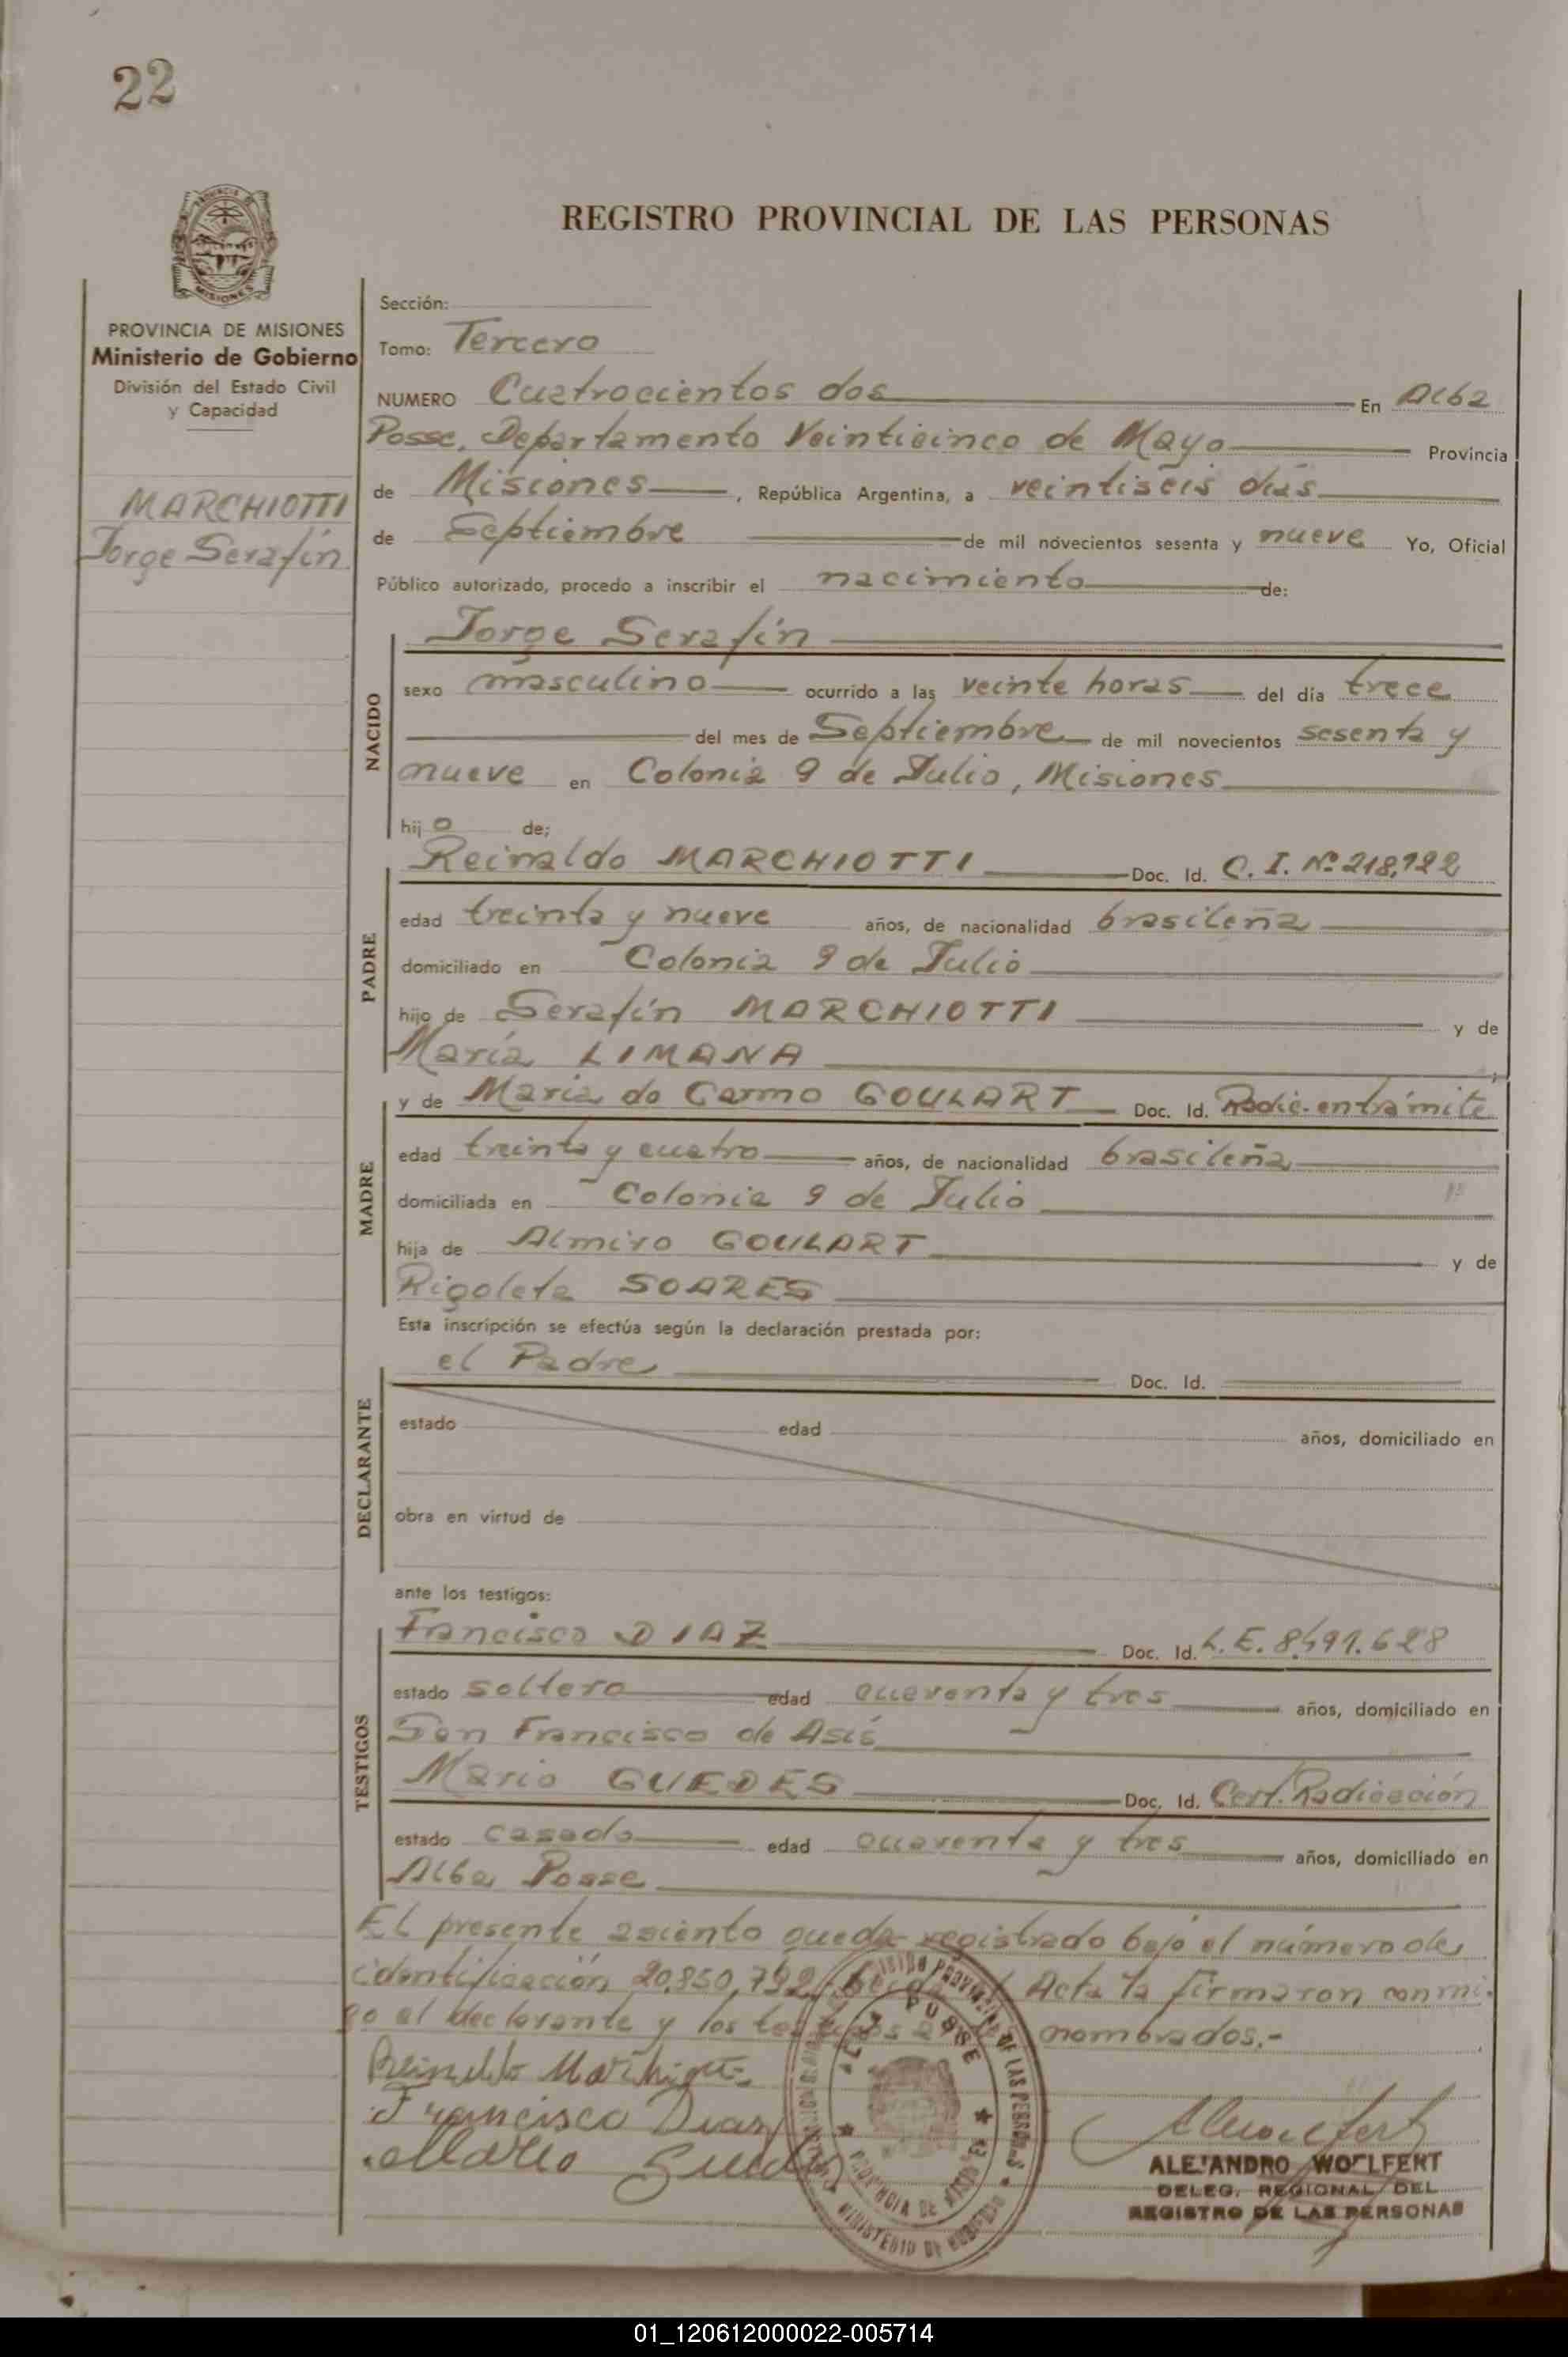 22
REGISTRO PROVINCIAL DE LAS PERSONAS
MISIONES
PROVINCIA DE MISIONES
Ministerio de Gobierno
División del Estado Civil
y Capacidad
MARCHIOTTI
Jorge Serafín
Sección:
Tomo: Tercero
NUMERO Cuatrocientos dos En Alba
Posse, Departamento Veinticinco de Mayo Provincia
de Misiones, República Argentina, a veintiséis días
de Septiembre de mil novecientos sesenta y nueve Yo, Oficial
Público autorizado, procedo a inscribir el nacimiento de:
NACIDO
Jorge Serafín
sexo masculino ocurrido a las veinte horas del día trece
del mes de Septiembre de mil novecientos sesenta y
nueve en Colonia 9 de Julio, Misiones
hijo de;
PADRE
Reinaldo MARCHIOTTI Doc. Id. C. I. Nº
edad treinta y nueve años, de nacionalidad brasileña
domiciliado en Colonia 9 de Julio
hijo de Serafín MARCHIOTTI y de
María LIMANA
MADRE
y de Maria do Carmo GOULART Doc. Id. Radic. en trámite
edad treinta y cuatro años, de nacionalidad brasileña
domiciliada en Colonia 9 de Julio
hija de Almiro GOULART y de
Rigoleta SOARES
Esta inscripción se efectúa según la declaración prestada por:
DECLARANTE
el Padre Doc. Id.
estado edad años, domiciliado en
obra en virtud de
ante los testigos:
TESTIGOS
Francisco DIAZ Doc. Id. L. E.
estado soltero edad cuarenta y tres años, domiciliado en
San Francisco de Asís
Mario GUEDES Doc. Id. Cert. Radicación
estado casado edad cuarenta y tres años, domiciliado en
Alba Posse
El presente asiento queda registrado bajo el número de
identificación 20.850.792. Acta la firmaron conmi-
go el declarante y los nombrados.-
Francisco Diaz
Mario
ALEJANDRO WOLFERT
DELEG. REGIONAL DEL
REGISTRO DE LAS PERSONAS
01_120612000022-005714